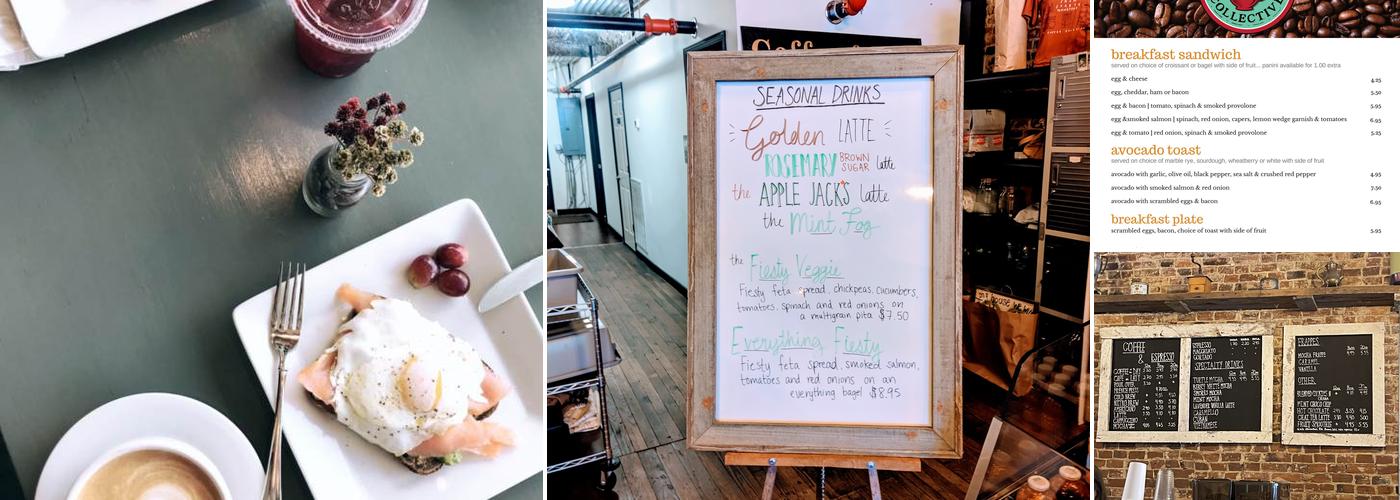 Coffee
SEASONAL DRINKS
Golden LATTE
ROSEMARY BROWN SUGAR latte
the APPLE JACKS latte
the Mint Fog
the Fiesty Veggie
Fiesty feta spread, chickpeas, cucumbers,
tomatoes, spinach and red onions on
a multigrain pita $7.50
Everything Fiesty
Fiesty feta spread, smoked salmon,
tomatoes and red onions on an
everything bagel $8.95
COLLECTIVE
breakfast sandwich
served on choice of croissant or bagel with side of fruit... panini available for 1.00 extra
egg & cheese 4.25
egg, cheddar, ham or bacon 5.50
egg & bacon | tomato, spinach & smoked provolone 5.95
egg &smoked salmon | spinach, red onion, capers, lemon wedge garnish & tomatoes 6.95
egg & tomato | red onion, spinach & smoked provolone 5.25
avocado toast
served on choice of marble rye, sourdough, wheatberry or white with side of fruit
avocado with garlic, olive oil, black pepper, sea salt & crushed red pepper 4.95
avocado with smoked salmon & red onion 7.50
avocado with scrambled eggs & bacon 6.95
breakfast plate
scrambled eggs, bacon, choice of toast with side of fruit 5.95
COFFEE
&
ESPRESSO
ESPRESSO
MACCHIATO
CORTADO
SPECIALTY DRINKS
TURTLE MOCHA
SMOKED MOCHA
MINT MOCHA
LAVENDER VANILLA LATTE
CARAMELLO
CUBAN
FRAPPES
MOCHA FRAPPE
CARAMEL
VANILLA
OTHER
MINT CHOCO CHIP
HOT CHOCOLATE
CHAI TEA LATTE
FRUIT SMOOTHIE